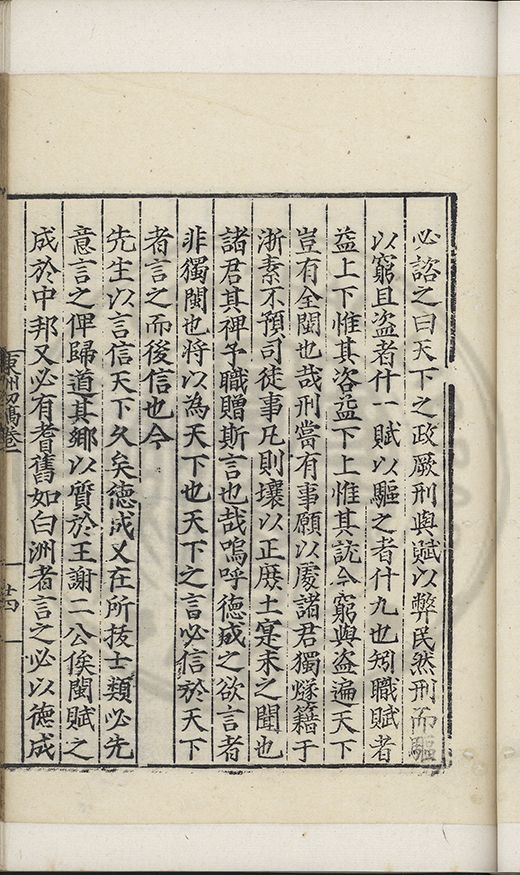 必諮之曰天下之政厥刑與賦以弊民然刑而驅
以窮且盜者什一賦以驅之者什九也矧職賦者
益上下惟其咨益下上惟其訧今窮與盜遍天下
豈有全閩也哉刑嘗有事願以處諸君獨燧籍于
浙素不預司徒事凡則壤以正厎土寔未之聞也
諸君其裨予職贈斯言也哉嗚呼德成之欲言者
非獨閩也將以為天下也天下之言必信於天下
者言之而後信也今
先生以言信天下久矣德成又在所技士類必先
意言之俾歸道其鄉以質於王謝二公俟閩賦之
成於中邦又必有耆舊如白洲者言之必以德成
東州初稿卷二
廿四